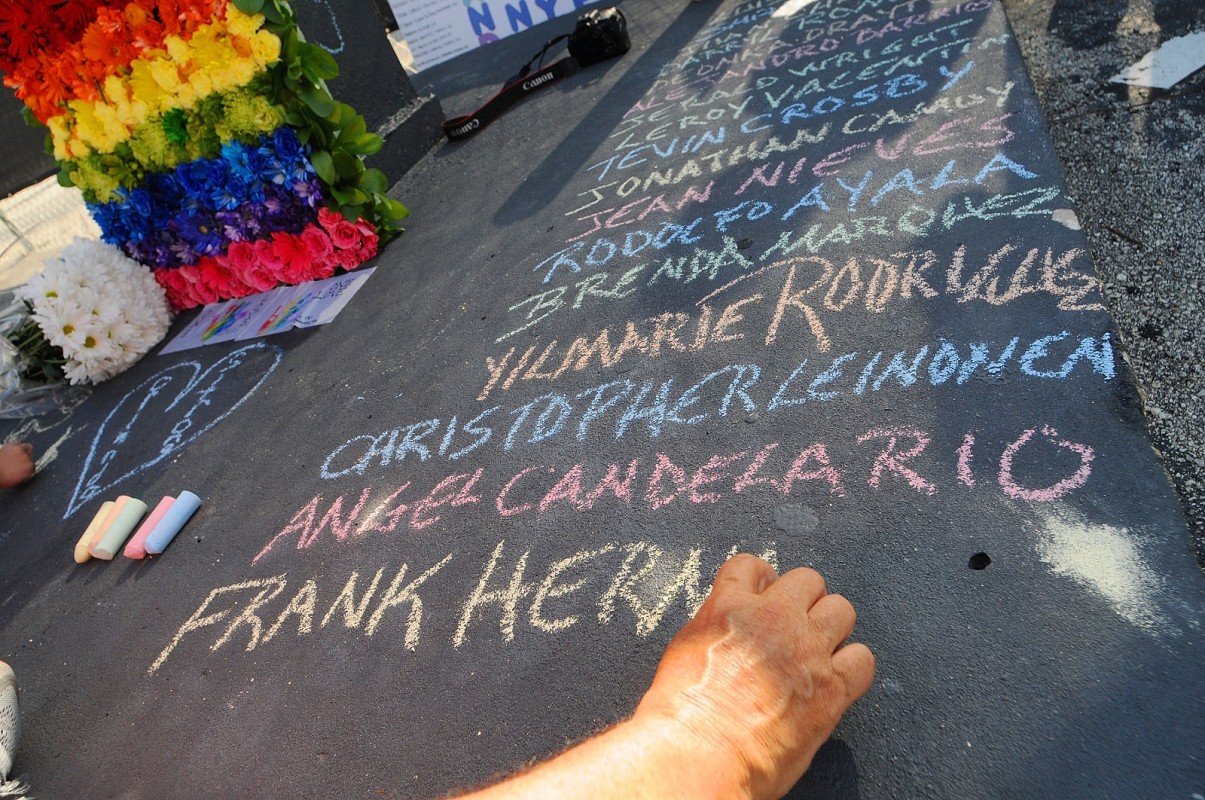 NNYL
Canon
ALEJANDRO BARRIOS
GERALD WRIGHT
LEROY VALENTIN
TEVIN CROSBY
JONATHAN CAMUY
JEAN NIEVES
RODOLFO AYALA
BRENDA MARQUEZ
YILMARIE RODRIGUES
CHRISTOPHER LEINONEN
ANGEL CANDELARIO
FRANK HERN